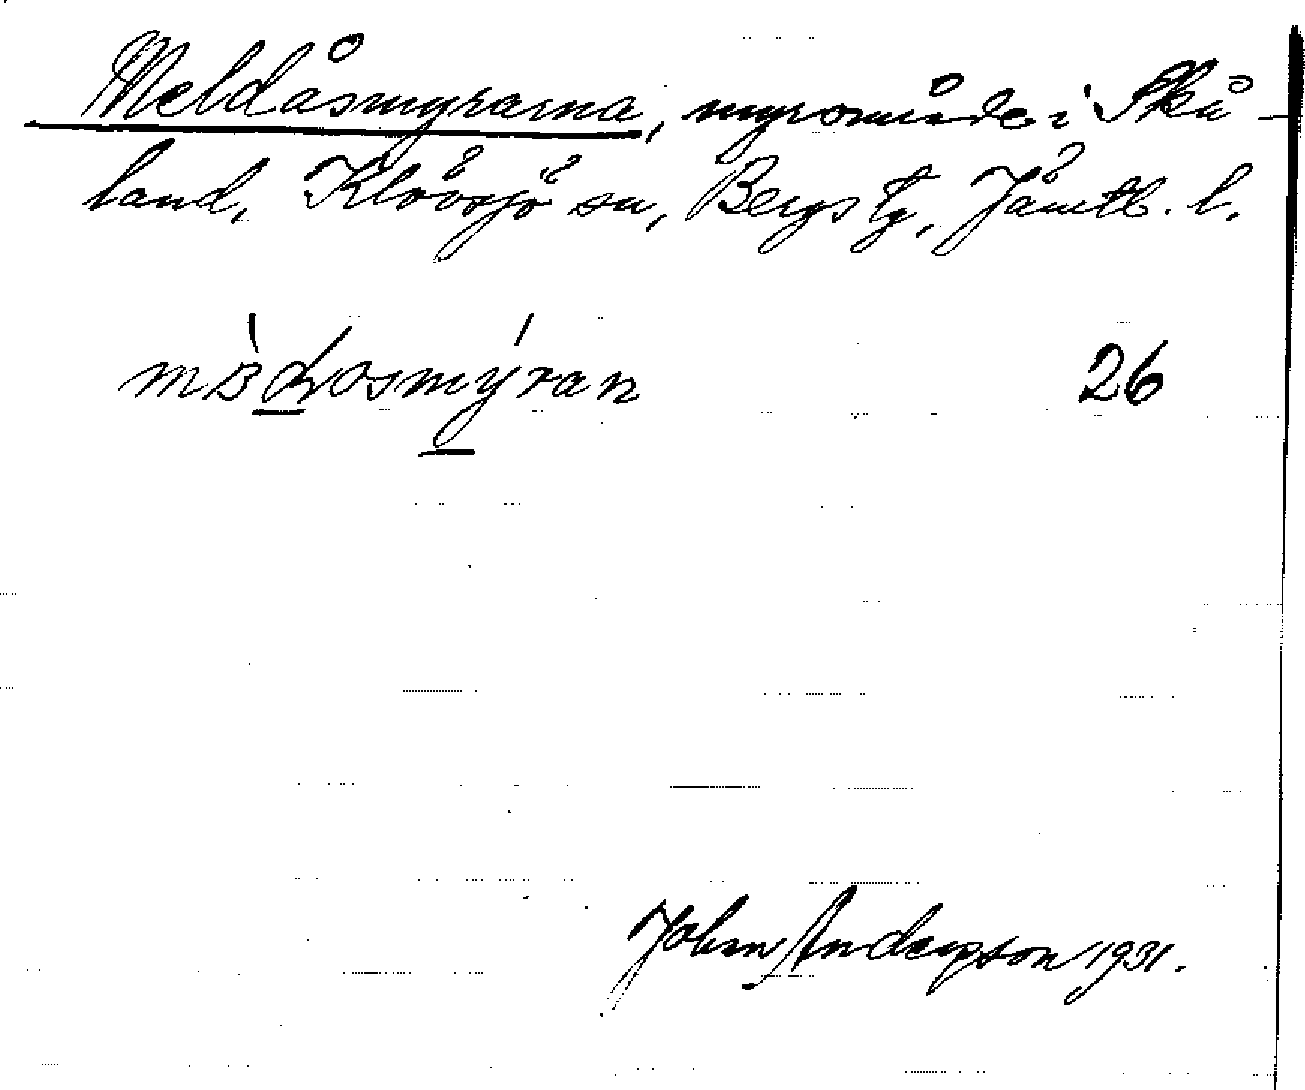 Meldåsmyrarna, myrområde i Skå-
land, Klövsjö sn, Bergs tg, Jämtl. l.
26
John Anderson 1931.